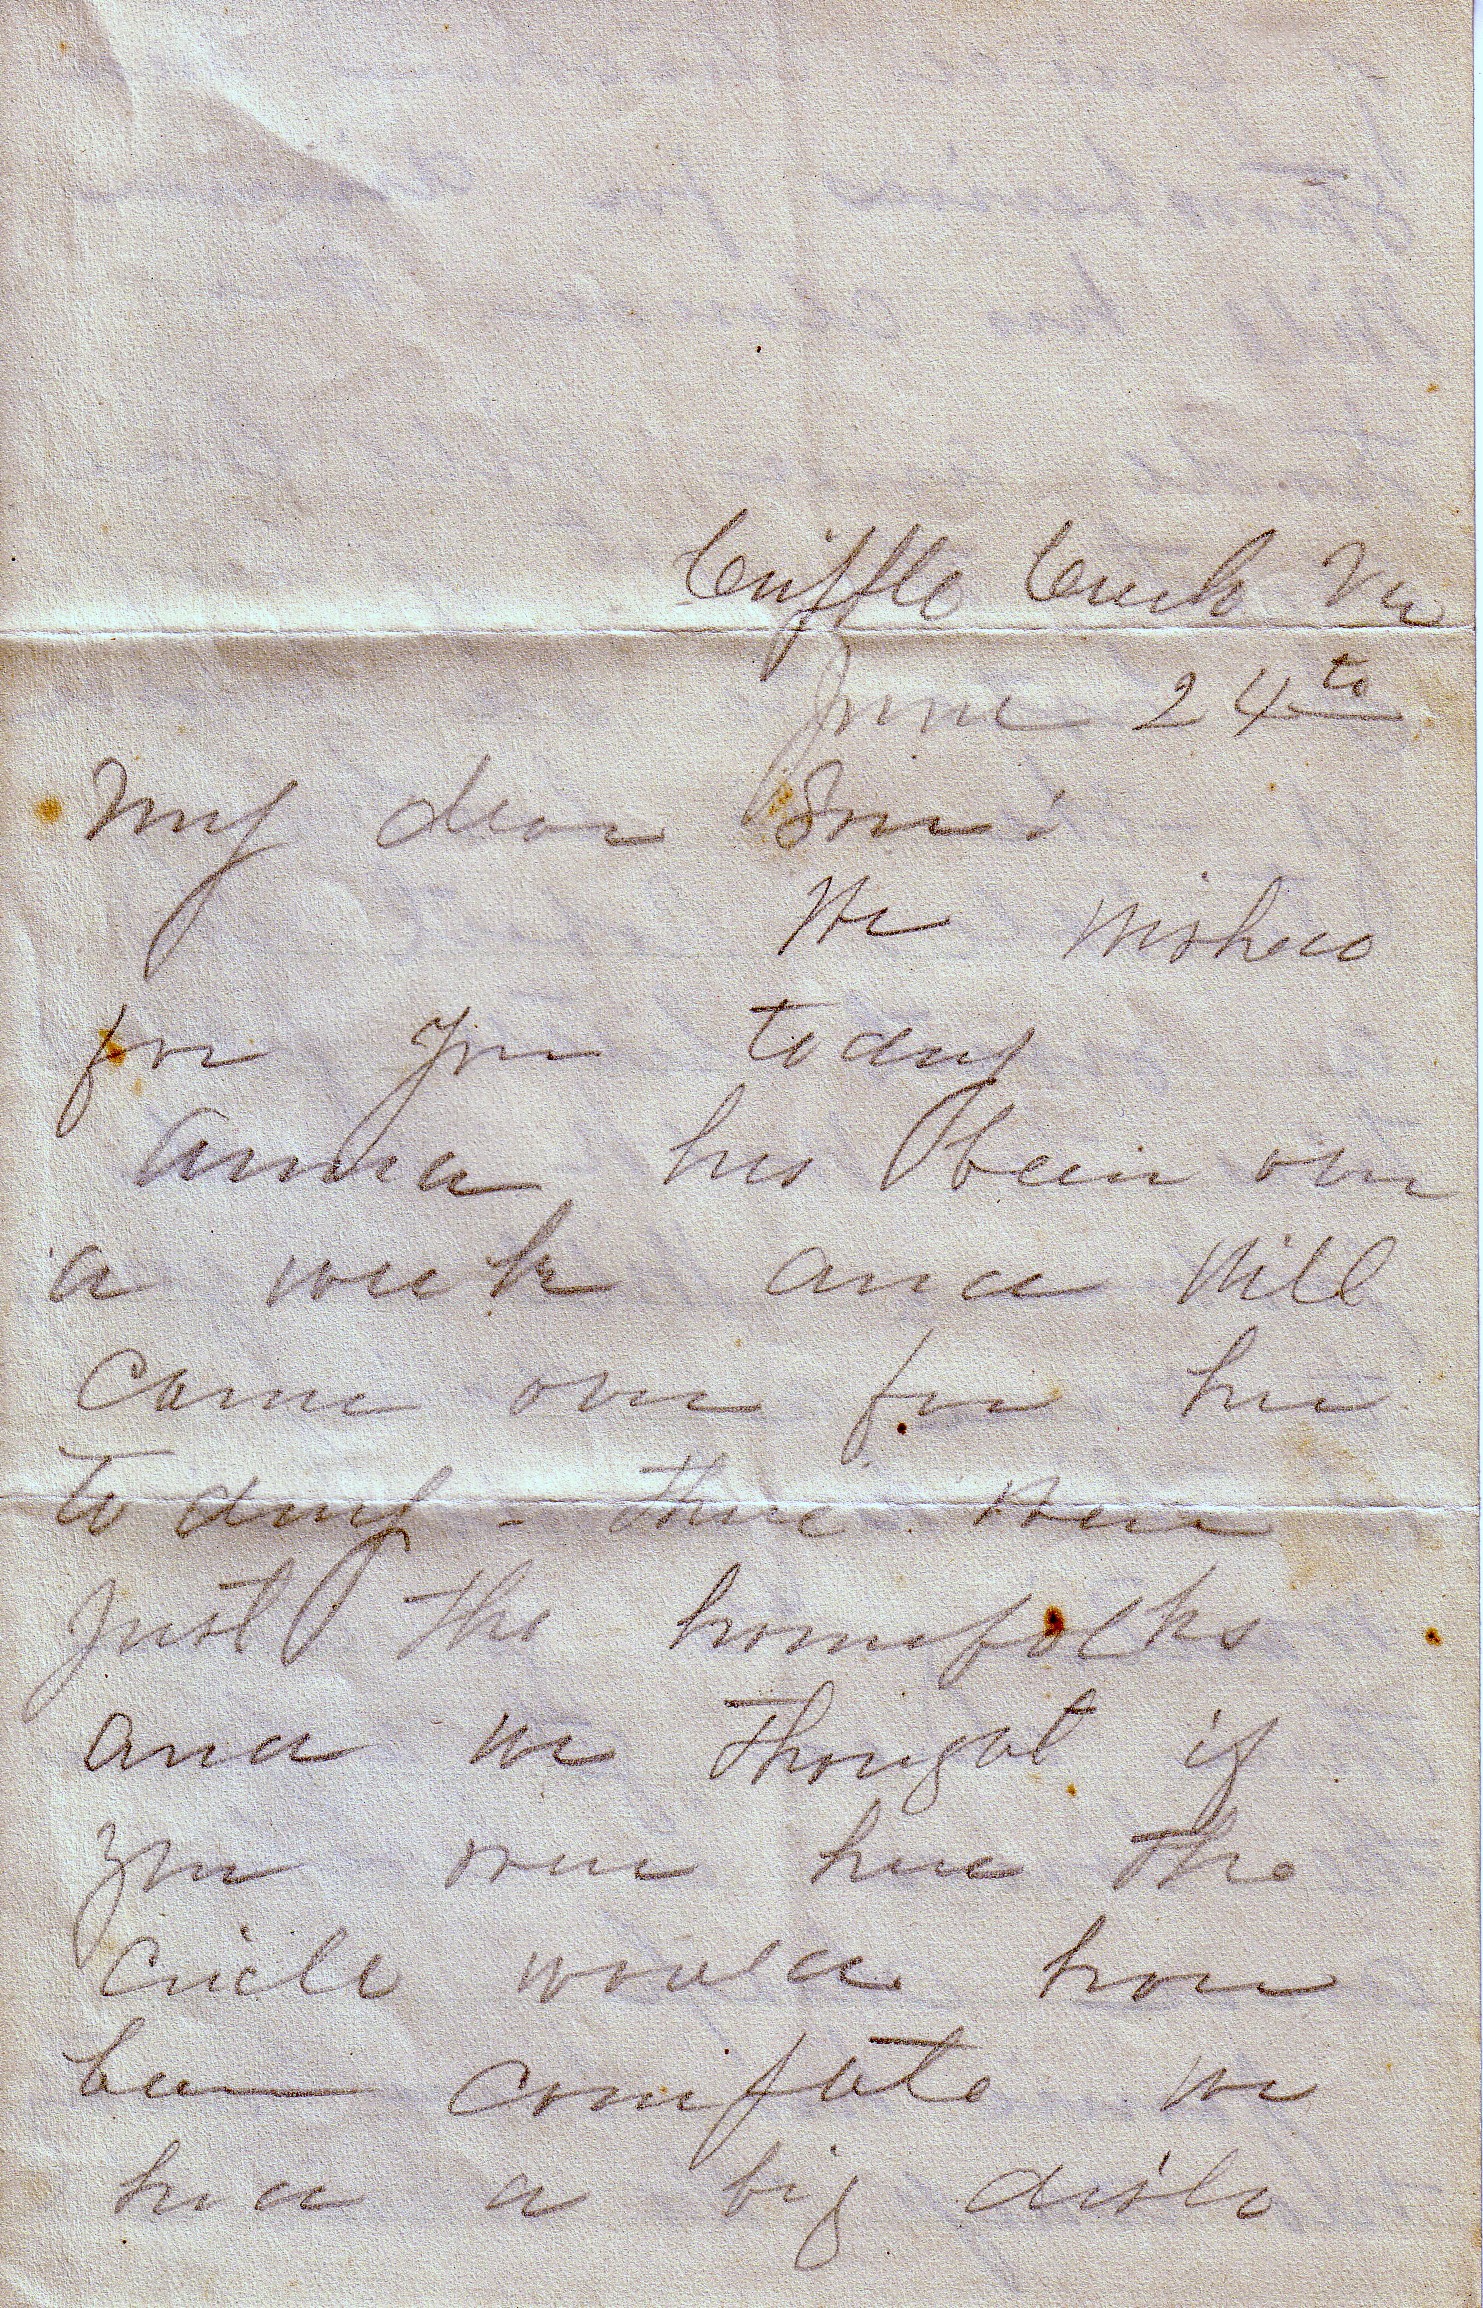 Cripple Creek Va
June 24th
My dear Son:
We wished
for you today
Anna has been over
a week and Will
came over for her
to day - there were
just the homefolks
and we thought if
you were here the
circle would have
been complete we
had a big dish